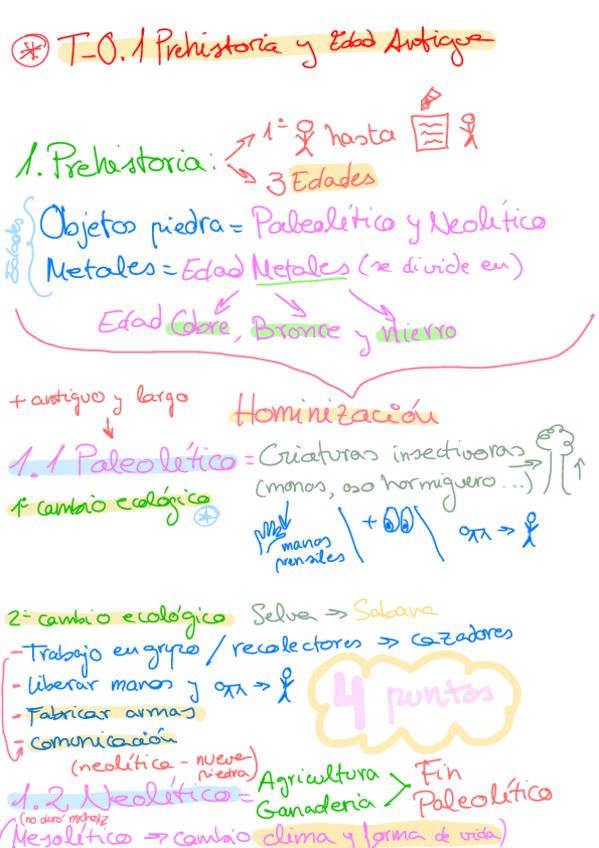 T-0.1 Prehistoria y Edad Antigua
1. Prehistoria:
1º hasta
3 Edades
Objetos piedra = Paleolítico y Neolítico
Metales = Edad Metales (se divide en)
Edad Cobre, Bronce y Hierro
+ antiguo y largo
Hominización
1.1 Paleolítico = Criaturas insectívoras
(monos, oso hormiguero...)
1º cambio ecológico
manos
prensiles
+
2º cambio ecológico Selva => Sabana
- Trabajo en grupo / recolectores => cazadores
- liberar manos y
- Fabricar armas
- comunicación
4 puntos
(neolítica - nueva
piedra)
1.2 Neolítico = Agricultura
Ganadería
Fin
Paleolítico
(no duró mucho)
(Mesolítico => cambio clima y forma de vida)